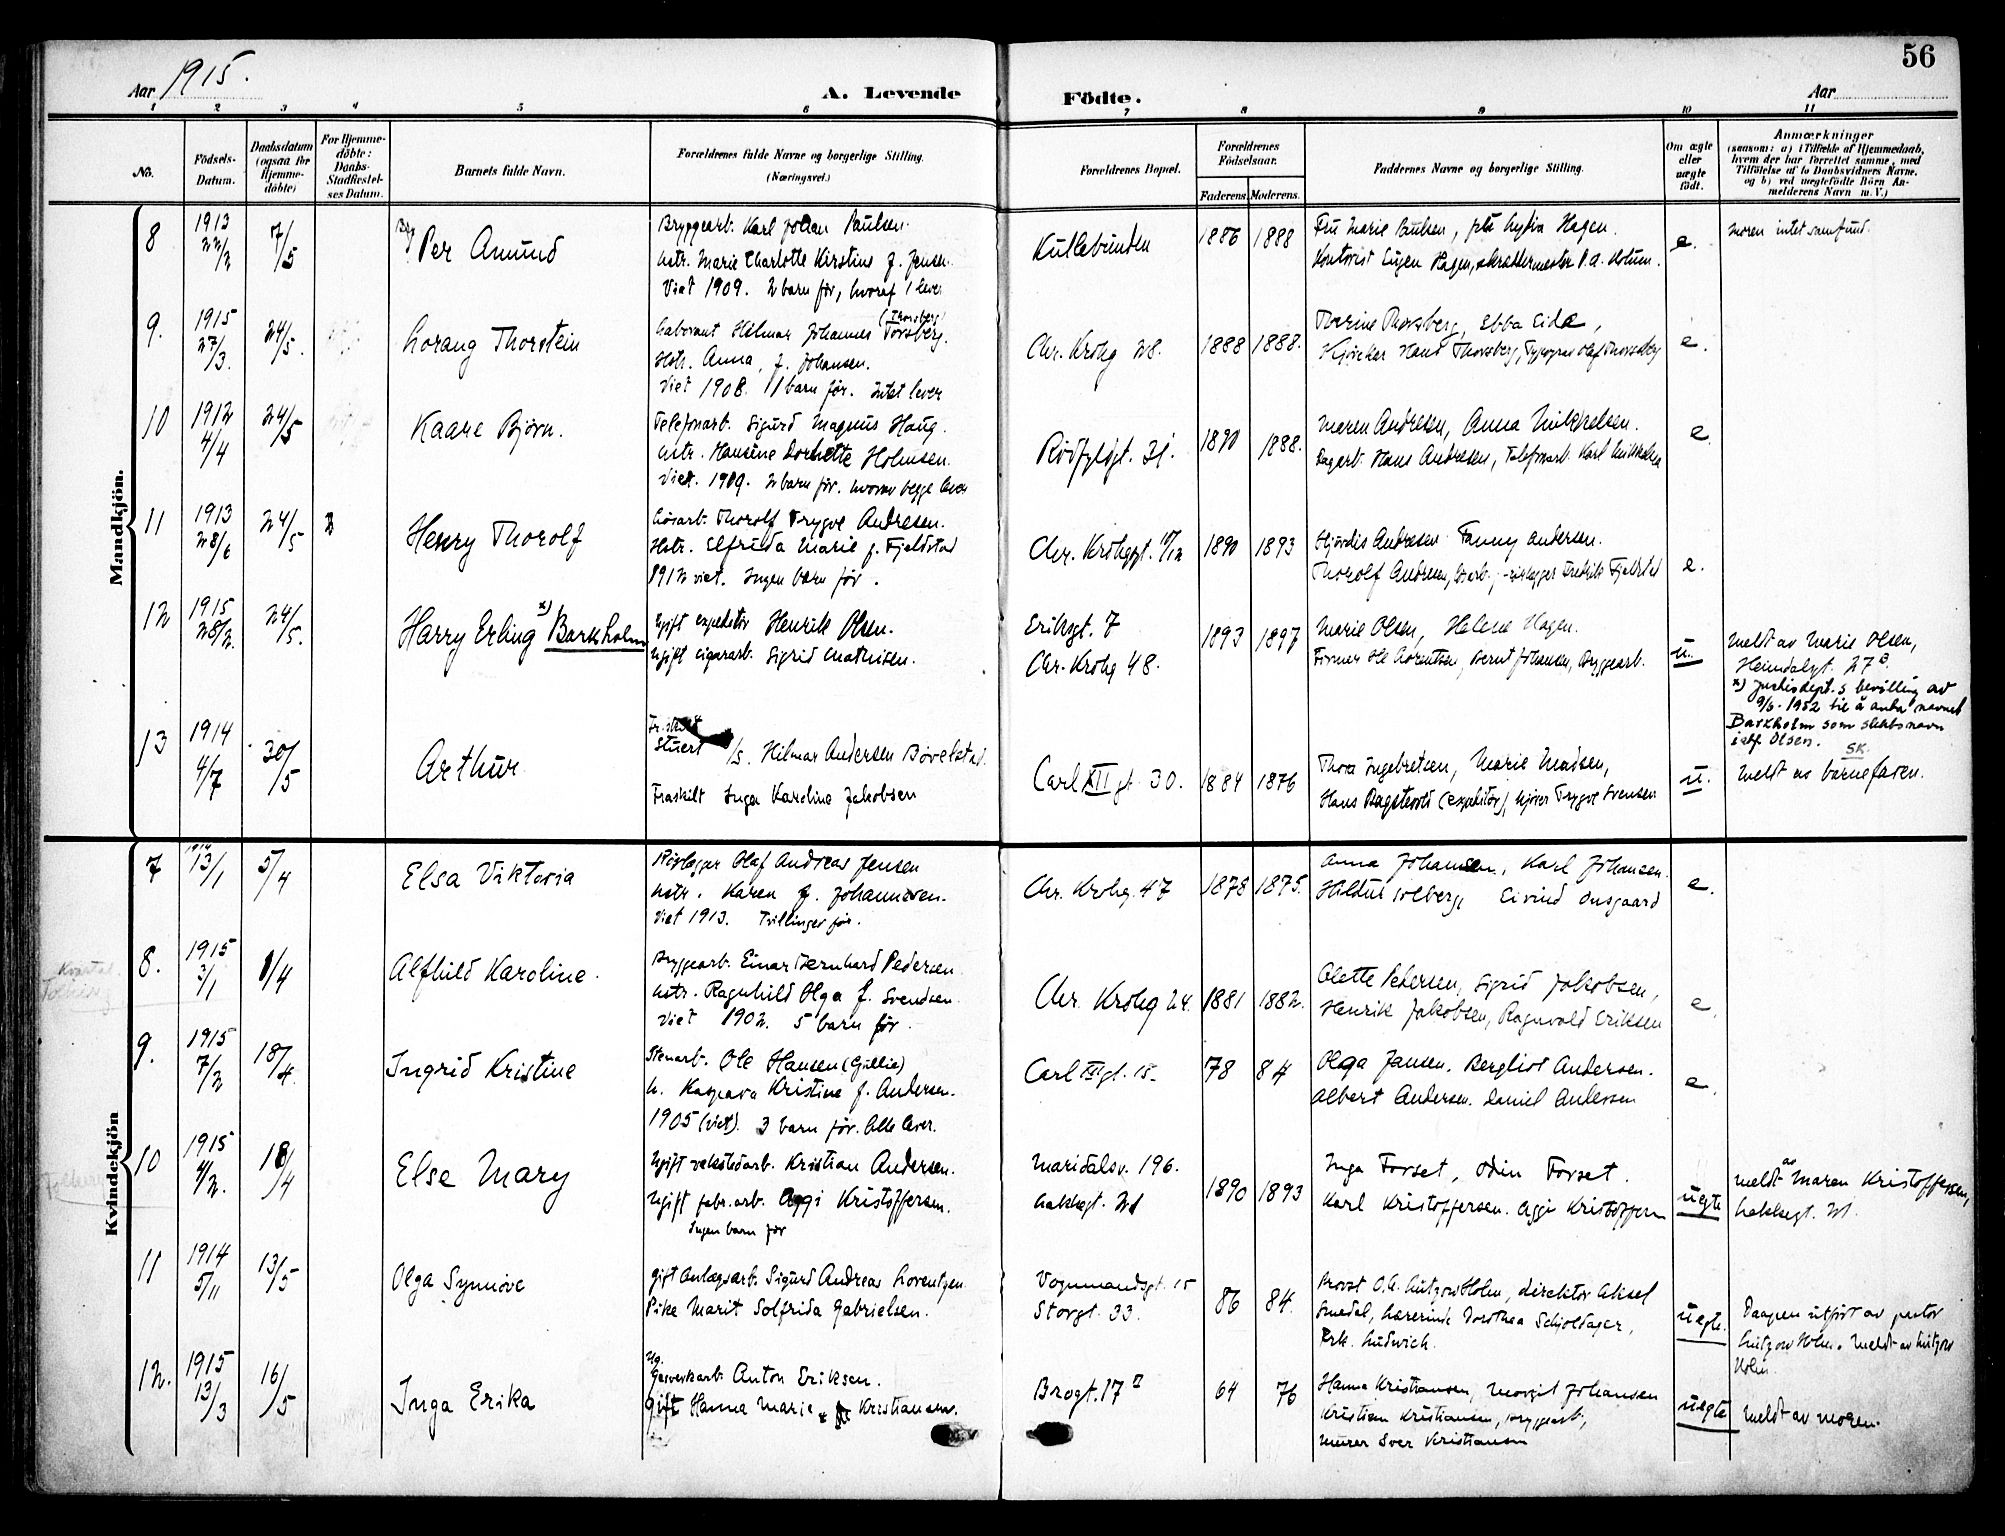 56
Aar 1915.
A. Levende Födte.
Aar
1 2 3 4 5 6 7 8 9 10 11
No.
Födsels-Datum.
Daabsdatum (ogsaa for Hjemmedöbte)
For Hjemmedöbte: Daabs-Stadfæstelses Datum.
Barnets fulde Navn.
Forældrenes fulde Navne og borgerlige Stilling. (Næringsvei.)
Forældrenes Bopæl.
Forældrenes Födselsaar.
Faderens. Moderens.
Faddernes Navne og borgerlige Stilling.
Om ægte eller uægte födt.
Anmærkninger
(saasom: a) i Tilfælde af Hjemmedaab,
hvem der har forrettet samme, med
Tilföielse af to Daabsvidners Navne,
og b) ved uægtefödte Börn An-
melderens Navn m. V.)
Mandkjön.
8 1913 7/5 Per Amund
Bryggearb. Karl Johan Paulsen.
Hstr. Marie Charlotte Kirstine f. Jensen.
Viet 1909. 2 barn før, hvoraf 1 lever
1886 1888
Fru Marie Paulsen, Lydia Hagen.
Kontorist Eugen Hagen, skræddermester
e.
moren intet samfund.
9. 1915 27/3. 24/5. Lorang Thorstein
(Thorsberg)
Hilmar Johannes Torsberg.
Hstr. Anna, f. Johansen.
Viet 1908. 1 barn før. Intet lever
Chr. Krohg 28. 1888 1888.
Thorine Thorsberg, Ebba Eide,
Hans Thorsberg, Typograf Olaf Thorsberg
e.
10 1912 4/4 24/5 Kaare Bjørn.
Telefonarb. Sigurd Magnus Haug.
Hstr. Hansine Dorthette Holmsen.
Viet. 1909. 2 barn før. hvorav begge lever
Rødfylgt. 1890 1888.
Maren Andresen, Anna Mikkelsen.
Dagarb. Hans Andresen, Telefonarb. Karl Mikkelsen
e.
11 1913 28/6 24/5 Henry Thorolf
Løsarb. Thorolf Trygve Andresen.
Hstr. Elfrida Marie f. Fjeldstad
1912 viet. Ingen barn før.
Chr. Krohggt. 1890 1893
Hjørdis Andresen Fanny Andersen.
Thorolf Andresen, Fredrik Fjeldstad
e.
12 1915 28/2. 24/5. Harry Erling x) Barkholm
Ugift expeditør Henrik Olsen.
Ugift cigararb. Sigrid Mathisen.
Eriksgt. 7
Chr. Krohg 48.
1893 1897
Marie Olsen, Helene Hagen.
Former Ole Lorentsen, Bernt Johansen, Bryggearb.
u.
Meldt av Marie Olsen,
Heimdalsgt. 27 B.
x) Justisdept.s bevilling av
9/6-1952 til å anta navnet
Barkholm som slektsnavn
istf. Olsen.
SK.
13 1914 4/7 30/5 Arthur
Stuert Hilmar Andersen Bøvelstad.
Fraskilt Inga Karoline Jakobsen
Carl XII gt. 30. 1884 1876
Thora Ingebretsen, Marie Madsen,
Hans (expeditør), Trygve Svensen
u.
Meldt av barnefaren.
Kvindekjön
7 1914 13/1 5/4 Elsa Viktoria
Rørlægger Olaf Andreas Jensen
Hstr. Karen f. Johannesen.
Viet 1913. Tvillinger før.
Chr. Krohg. 47 1878 1875.
Anna Johansen, Karl Johansen.
Hildur Solberg, Eivind Onsgaard
e.
8. 1915 3/1 1/4 Alfhild Karoline.
Bryggearb. Einar Bernhard Pedersen
Hstr. Ragnhild Olga f. Svendsen.
Viet 1902. 5 barn før.
Chr. Krohg 24. 1881 1882.
Olette Pedersen, Sigrid Jakobsen,
Henrik Jakobsen, Ragnvald Eriksen
e.
9. 1915 7/2 18/4. Ingrid Kristine
Stenarb. Ole Hansen (Gullie)
H. Kaspara Kristine f. Andersen.
1905 (viet). 3 barn før. Alle lever.
Carl XII gt. 15. 78 84
Olga Jansen. Bergliot Andersen.
Albert Andersen. Daniel Andersen
e.
10 1915 4/2. 18/4 Else Mary
Ugift vekstedarb. Kristian Andersen.
Ugift fabr.arb. Aggi Kristoffersen.
Ingen barn før
Maridalsv. 196.
Lakkegt. 21
1890 1893
Inga Forset, Odin Forset.
Karl Kristoffersen. Aggi Kristoffersen
uegte
Meldt av Maren Kristoffersen,
Lakkegt. 21.
11 1914 5/11 13/5 Olga Synnøve
Gift Anlægsarb. Sigurd Andreas Lorentzen
Pike Marit Solfrida Gabrielsen.
Vognmandsgt. 15
Storgt. 33.
86 84.
Provst O.A. Lützow Holm, direktør Aksel
Smedal, Lærerinde Dorothea Schjoldager,
Frk. Ludwich.
uegte.
Daapen utført av pastor
Lützow Holm. Meldt av Lützow
Holm.
12. 1915 13/3 16/5 Inga Erika
Ug.
Gasverkarb. Anton Eriksen.
Gift Hanna Marie Kristiansen.
Brogt. 17 64 76
Hanna Kristiansen, Margit Johansen
Kristian Kristiansen, bryggearb.,
murer Iver Kristiansen
uegte
Meldt av moren.